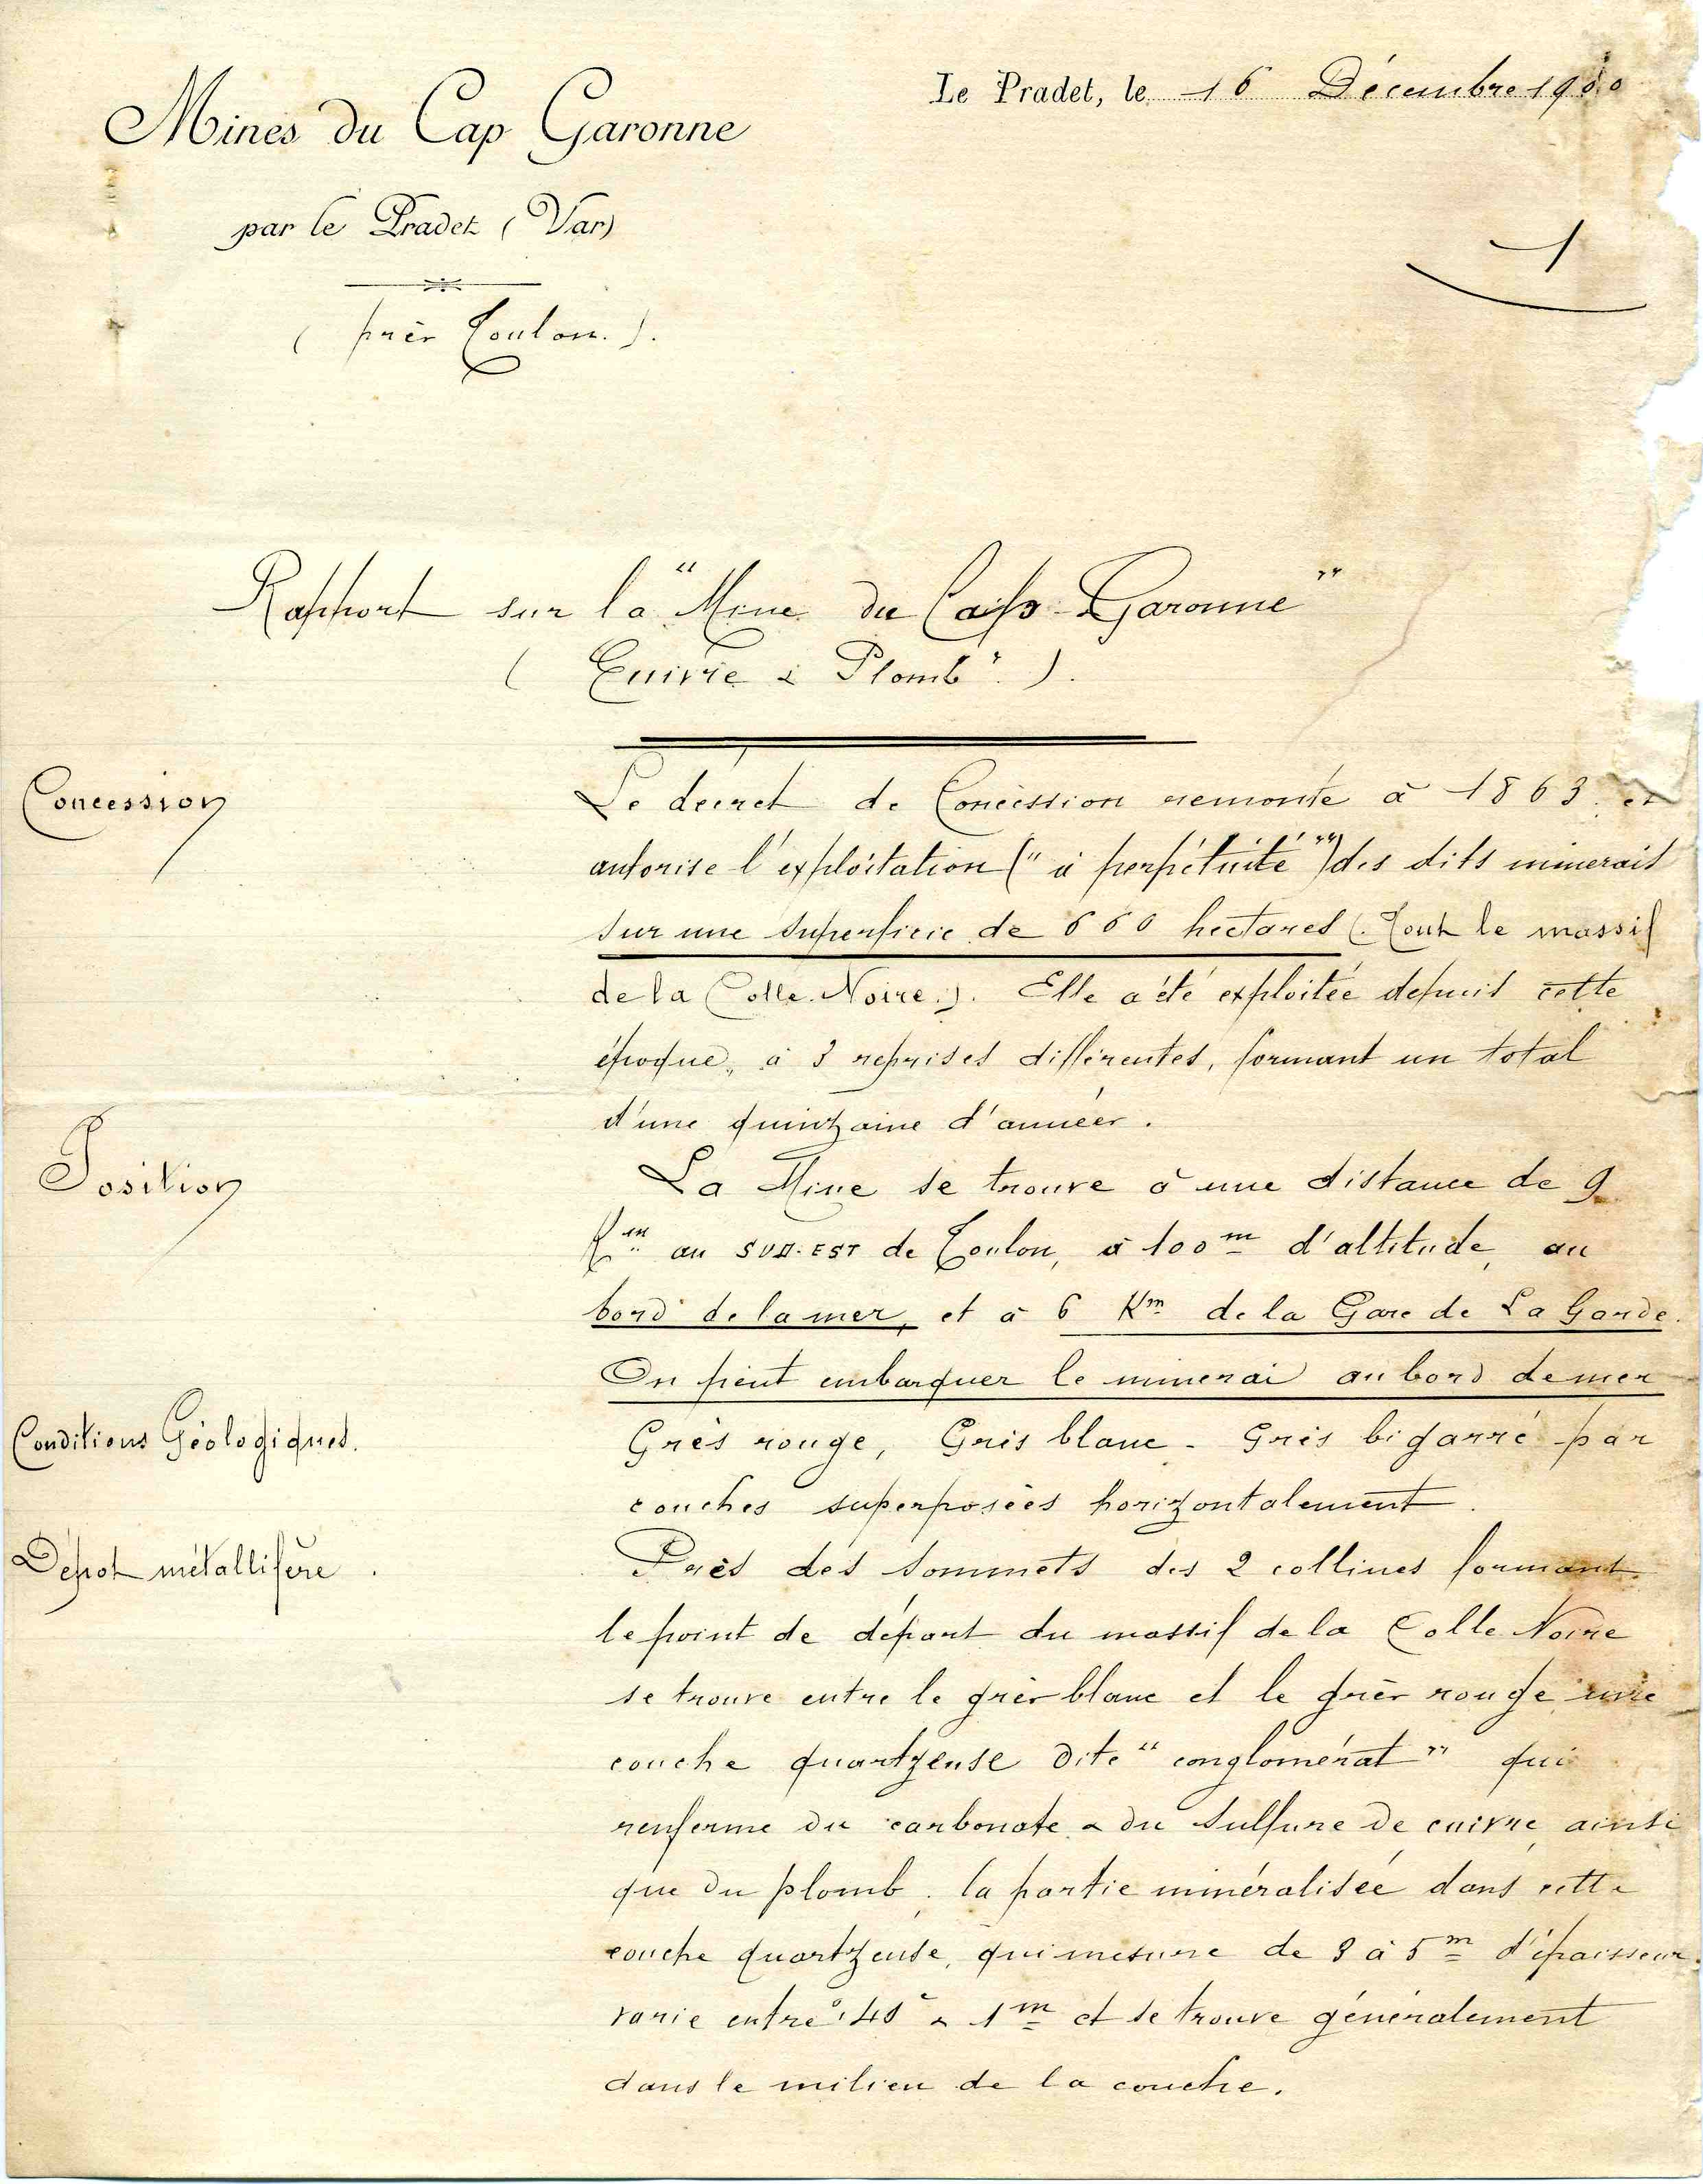 Mines du Cap Garonne
par le Pradet (Var)
( près Toulon. ).
Le Pradet, le 16 Décembre 1900
1
Rapport sur la "Mine du Cap-Garonne"
( Cuivre & Plomb". ).
Concession
Le decret de Concession remonte à 1863. et
autorise l'exploitation ("à perpétuité") des dits minerais
sur une superficie de 660 hectares (. Tout le massif
de la Colle. Noire.). Elle a été exploitée depuis cette
époque, à 3 reprises différentes, formant un total
d'une quinzaine d'années.
Position
La Mine se trouve à une distance de 9
Km au SUD.EST de Toulon, à 100m d'altitude, au
bord de la mer, et à 6 Km de la Gare de La Garde.
On peut embarquer le minerai au bord de mer
Conditions Géologiques.
Grès rouge, Grès blanc - Grès bigarré par
couches superposées horizontalement.
Dépot métallifère.
Près des sommets des 2 collines formant
le point de départ du massif de la Colle Noire
se trouve entre le grès blanc et le grès rouge une
couche quartzeuse dite "conglomérat" qui
renferme du carbonate & du sulfure de cuivre ainsi
que du plomb. la partie minéralisée dans cette
couche quartzeuse, qui mesure de 3 à 5m d'épaisseur.
varie entre 0,40c & 1m et se trouve généralement
dans le milieu de la couche.